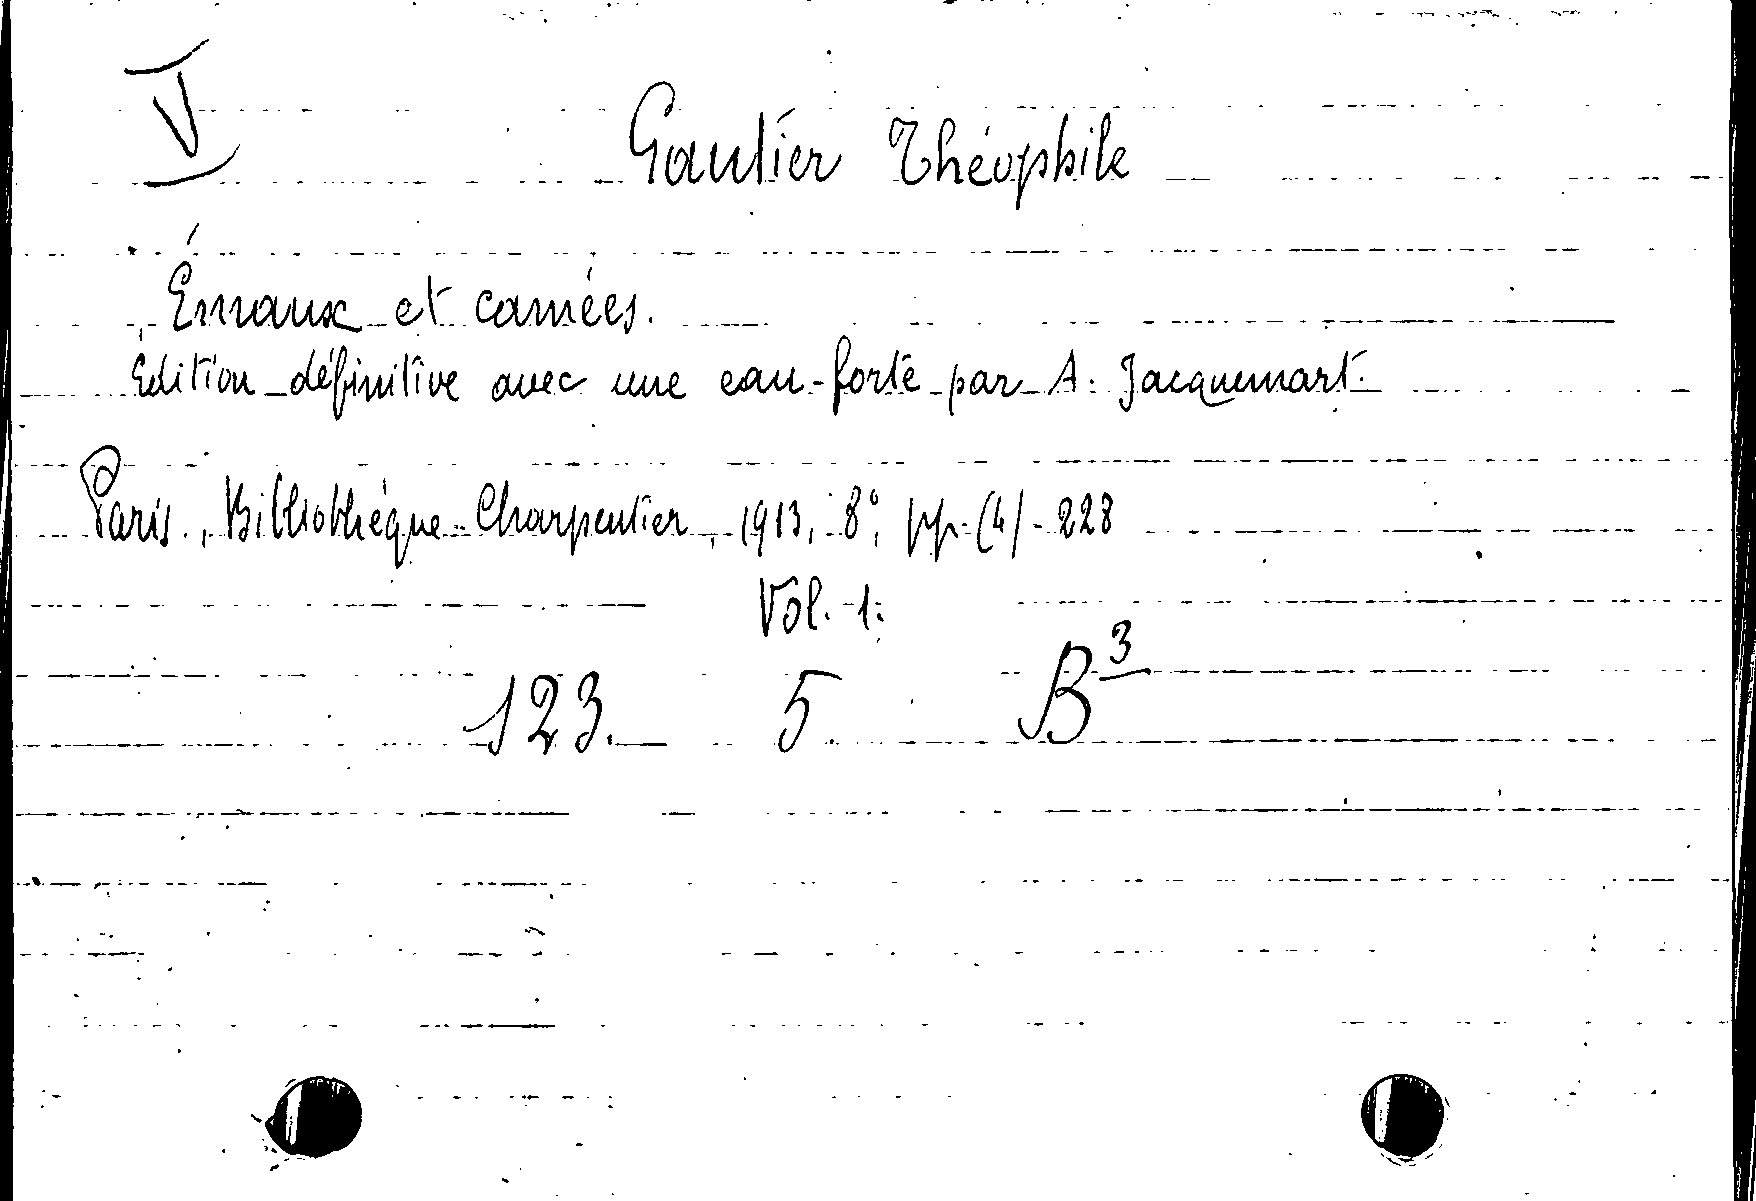 V
Gautier Théophile
Émaux et camées.
Édition définitive avec une eau-forte par A. Jacquemart.
Paris., Bibliothèque Charpentier, 1913, 8°, pp. (4) - 228
Vol. 1.
123. 5 B³